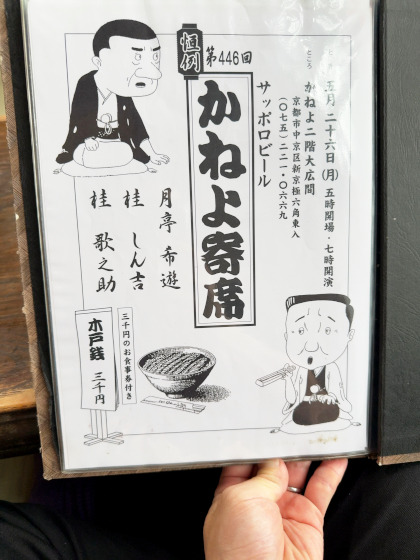 とき 五月二十六日(月)五時開場・七時開演
ところ かねよ二階大広間
京都市中京区新京極六角東入
(〇七五)二二一・〇六六九
サッポロビール
恒例
第446回
かねよ寄席
月亭 希遊
桂 しん吉
桂 歌之助
三千円のお食事券付き
木戸銭 三千円